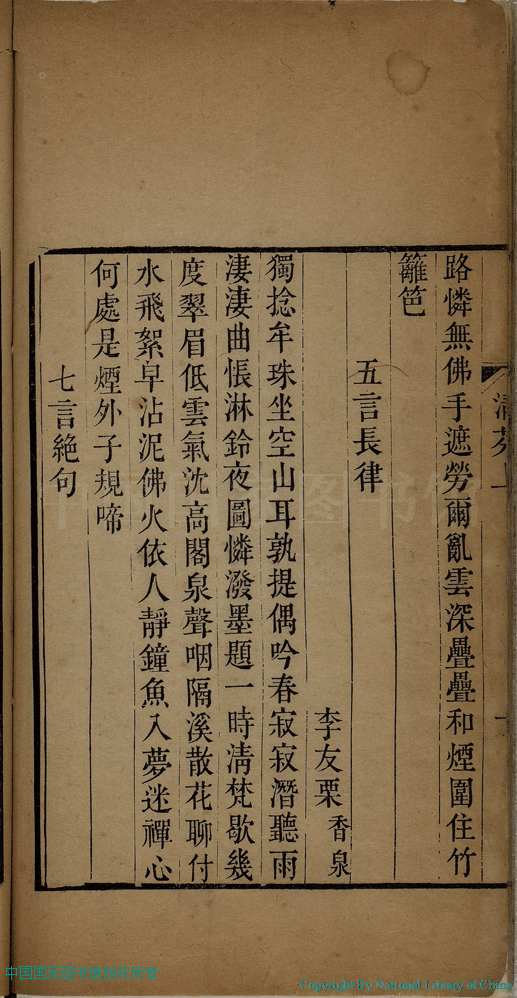 路憐無佛手遮勞爾亂雲深疊疊和煙圍住竹
籬笆
五言長律
李友栗香泉
獨捻牟珠坐空山耳孰提偶吟春寂寂潛聽雨
淒淒曲悵淋鈴夜圖憐潑墨題一時清梵歇幾
度翠眉低雲氣沈高閣泉聲咽隔溪散花聊付
水飛絮早沾泥佛火依人靜鐘魚入夢迷禪心
何處是煙外子規啼
七言絕句
Copyright By National Library of China